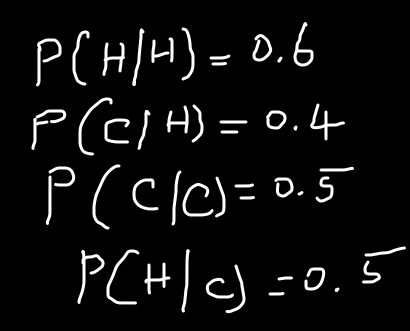 P(H/H) = 0.6
P(C/H) = 0.4
P(C/C) = 0.5
P(H/C) = 0.5